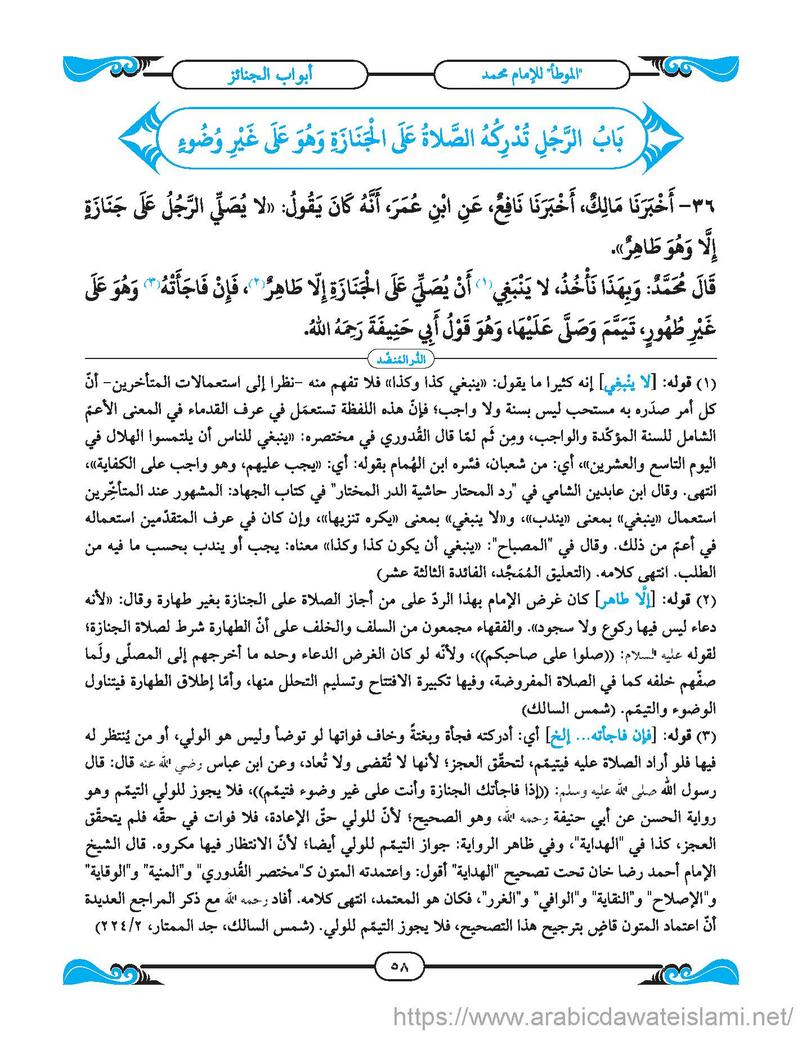 "الموطأ" للإمام محمد
أبواب الجنائز
بَابُ الرَّجُلِ تُدْرِكُهُ الصَّلاةُ عَلَى الْجَنَازَةِ وَهُوَ عَلَى غَيْرِ وُضُوءٍ
٣٦- أَخْبَرَنَا مَالِكٌ، أَخْبَرَنَا نَافِعٌ، عَنِ ابْنِ عُمَرَ، أَنَّهُ كَانَ يَقُولُ: «لا يُصَلِّي الرَّجُلُ عَلَى جَنَازَةٍ
إِلَّا وَهُوَ طَاهِرٌ».
قَالَ مُحَمَّدٌ: وَبِهَذَا نَأْخُذُ، لا يَنْبَغِي(١) أَنْ يُصَلِّيَ عَلَى الْجَنَازَةِ إِلّا طَاهِرٌ(٢)، فَإِنْ فَاجَأَتْهُ(٣) وَهُوَ عَلَى
غَيْرِ طُهُورٍ، تَيَمَّمَ وَصَلَّى عَلَيْهَا، وَهُوَ قَوْلُ أَبِي حَنِيفَةَ رَحِمَهُ اللهُ.
الدُّر المُنضَّد
(١) قوله: [لا ينْبغِي] إنه كثيرا ما يقول: «ينبغي كذا وكذا» فلا تفهم منه -نظرا إلى استعمالات المتأخرين- أنّ
كل أمر صدَره به مستحب ليس بسنة ولا واجب؛ فإنّ هذه اللفظة تستعمَل في عرف القدماء في المعنى الأعمّ
الشامل للسنة المؤكّدة والواجب، ومِن ثَم لمّا قال القُدوري في مختصره: «ينبغي للناس أن يلتمسوا الهلال في
اليوم التاسع والعشرين»، أي: من شعبان، فسَّره ابن الهُمام بقوله: أي: «يجب عليهم، وهو واجب على الكفاية»،
انتهى. وقال ابن عابدين الشامي في "رد المحتار حاشية الدر المختار" في كتاب الجهاد: المشهور عند المتأخِّرين
استعمال «ينبغي» بمعنى «يندب»، و«لا ينبغي» بمعنى «يكره تنزيها»، وإن كان في عرف المتقدّمين استعماله
في أعمّ من ذلك. وقال في "المصباح": «ينبغي أن يكون كذا وكذا» معناه: يجب أو يندب بحسب ما فيه من
الطلب. انتهى كلامه. (التعليق المُمَجَّد، الفائدة الثالثة عشر)
(٢) قوله: [إلَّا طاهر] كان غرض الإمام بهذا الردّ على من أجاز الصلاة على الجنازة بغير طهارة وقال: «لأنه
دعاء ليس فيها ركوع ولا سجود». والفقهاء مجمعون من السلف والخلف على أنّ الطهارة شرط لصلاة الجنازة؛
لقوله عليه السلام: ((صلوا على صاحبكم))، ولأنّه لو كان الغرض الدعاء وحده ما أخرجهم إلى المصلّى ولَما
صفّهم خلفه كما في الصلاة المفروضة، وفيها تكبيرة الافتتاح وتسليم التحلل منها، وأمّا إطلاق الطهارة فيتناول
الوضوء والتيمّم. (شمس السالك)
(٣) قوله: [فإن فاجأته... إلخ] أي: أدركته فجأة وبغتةً وخاف فواتها لو توضأ وليس هو الولي، أو من يُنتظر له
فيها فلو أراد الصلاة عليه فيتيمّم، لتحقّق العجز؛ لأنها لا تُقضى ولا تُعاد، وعن ابن عباس رضي الله عنه قال: قال
رسول الله صلى الله عليه وسلم: ((إذا فاجأتك الجنازة وأنت على غير وضوء فتيمّم))، فلا يجوز للولي التيمّم وهو
رواية الحسن عن أبي حنيفة رحمه الله، وهو الصحيح؛ لأنّ للولي حقّ الإعادة، فلا فوات في حقّه فلم يتحقّق
العجز، كذا في "الهداية"، وفي ظاهر الرواية: جواز التيمّم للولي أيضا؛ لأنّ الانتظار فيها مكروه. قال الشيخ
الإمام أحمد رضا خان تحت تصحيح "الهداية" أقول: واعتمدته المتون كـ"مختصر القُدوري" و"المنية" و"الوقاية"
و"الإصلاح" و"النقاية" و"الوافي" و"الغرر"، فكان هو المعتمد، انتهى كلامه. أفاد رحمه الله مع ذكر المراجع العديدة
أنّ اعتماد المتون قاضٍ بترجيح هذا التصحيح، فلا يجوز التيمّم للولي. (شمس السالك، جد الممتار، ٢٢٤/٢)
٥٨
https://www.arabicdawateislami.net/